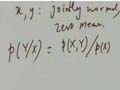 x, y : jointly normal,
zero mean.
p(Y/X) = p(X,Y)/p(X)